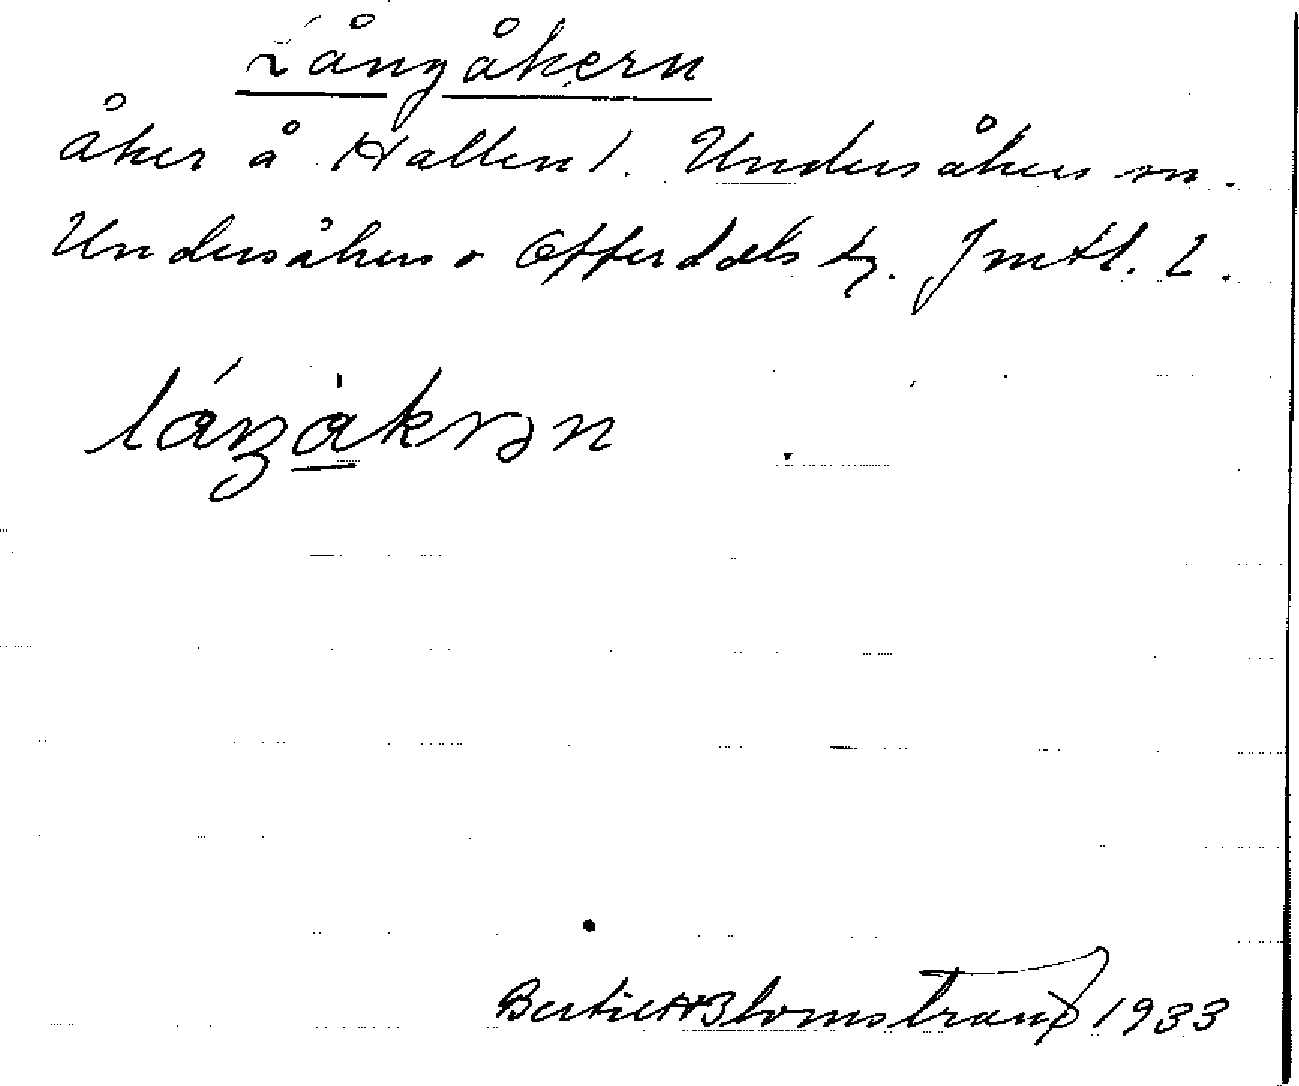 Långåkern
åker å Hallen 1. Undersåkers sn.
Undersåkers o Offerdals tg. Jmtl. L.
láŋåkrən
Bertil H Blomstrand 1933